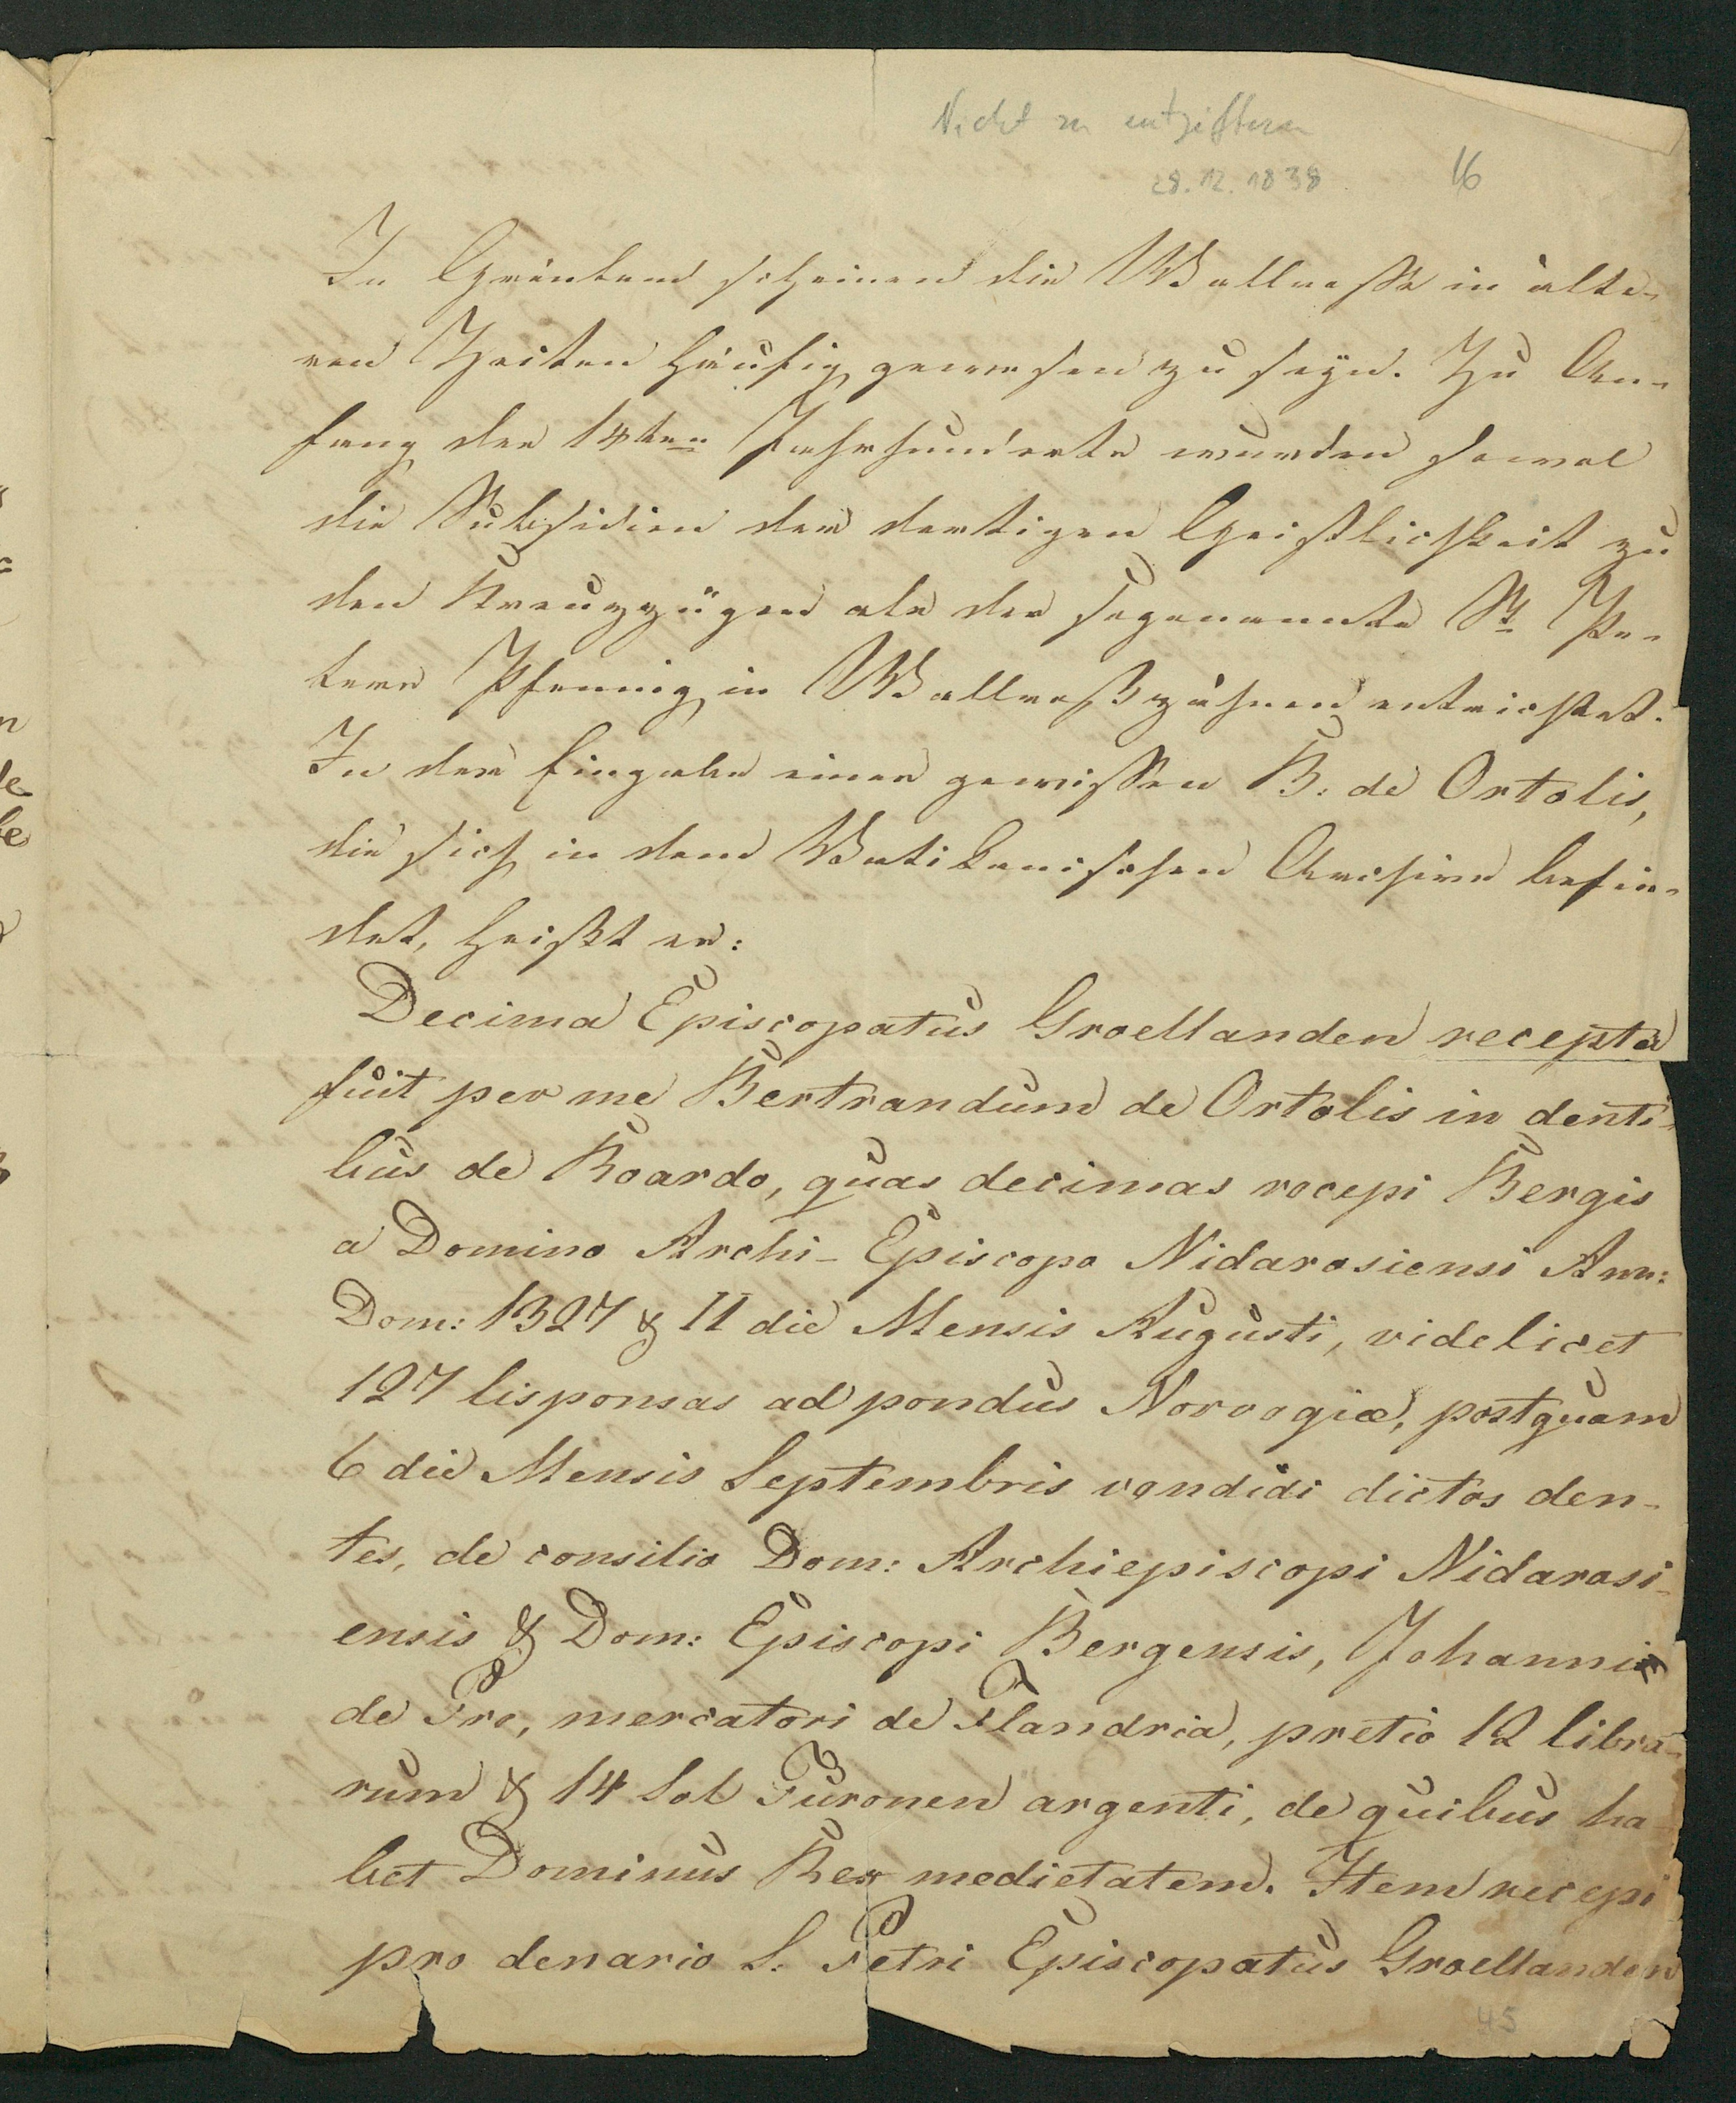 Nicht zu entziffern
28.12.1838.
16
In Grönland scheinen die Wallrosse in älte-
ren Zeiten häufig gewesen zu seyn. Zu An-
fang des 14ten Jahrhunderts wurden sowol
die Subsidien der dortigen Geistlichkeit zu
den Kreuzzügen als der sogenannte St Pe-
ters Pfennig in Wallroßzähnen entrichtet.
In der Eingabe eines gewissen B: de Ortolis,
die sich in dem Vatikanischen Archive befin-
det, heißt es:
Decima Episcopatus Groellanden recepta
fuit per me Bertrandum de Ortolis in denti-
bus de Roardo, quas decimas recepi Bergis
a Domino Archi-Episcopo Nidarosiensi Ann:
Dom: 1327 & II die Mensis Augusti, videlicet
127 lisponsas ad pondus Norvogiæ, postquam
6 die Mensis Septembris vendidi dictos den-
tes, de consilio Dom: Archiepiscopi Nidarosi-
ensis & Dom: Episcopi Bergensis, Johanni
de Pro, mercatori de Flandria, pretio 12 libra-
rum & 14 Sol Turonen argenti, de quibus ha-
bet Dominus Rex medietatem. Item recepi
pro denario S. Petri Episcopatus Groellanden
45